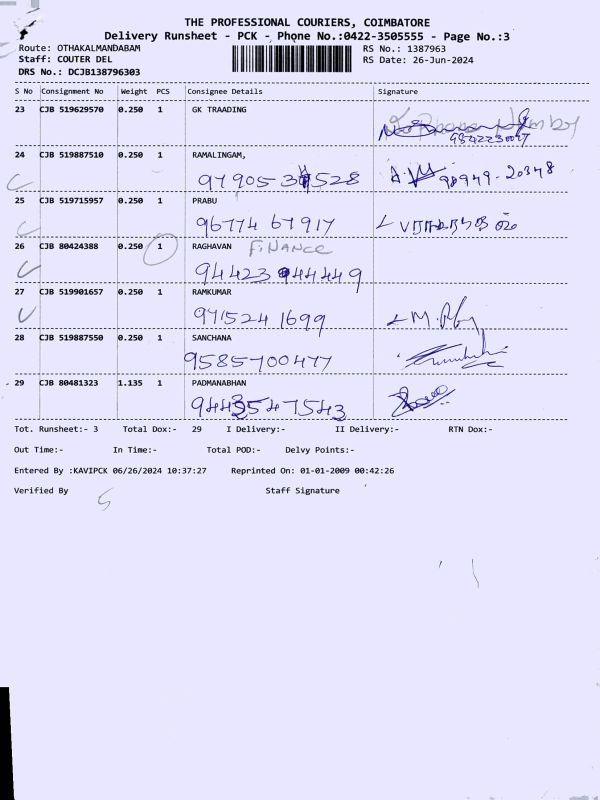 THE PROFESSIONAL COURIERS, COIMBATORE
Delivery Runsheet - PCK - Phone No.:0422-3505555 - Page No.:3
Route: OTHAKALMANDABAM
RS No.: 1387963
Staff: COUTER DEL
RS Date: 26-Jun-2024
DRS No.: DCJB138796303
S No Consignment No Weight PCS Consignee Details Signature
23 CJB 519629570 0.250 1 GK TRAADING
24 CJB 519887510 0.250 1 RAMALINGAM,
98949-20348
25 CJB 519715957 0.250 1 PRABU
96774 67917
26 CJB 80424388 0.250 1 RAGHAVAN FINANCE
94423 44449
27 CJB 519901657 0.250 1 RAMKUMAR
971524 1699
28 CJB 519887550 0.250 1 SANCHANA
9585700477
29 CJB 80481323 1.135 1 PADMANABHAN
9443547543
Tot. Runsheet:- 3 Total Dox:- 29 I Delivery:- II Delivery:- RTN Dox:-
Out Time:- In Time:- Total POD:- Delvy Points:-
Entered By :KAVIPCK 06/26/2024 10:37:27 Reprinted On: 01-01-2009 00:42:26
Verified By Staff Signature